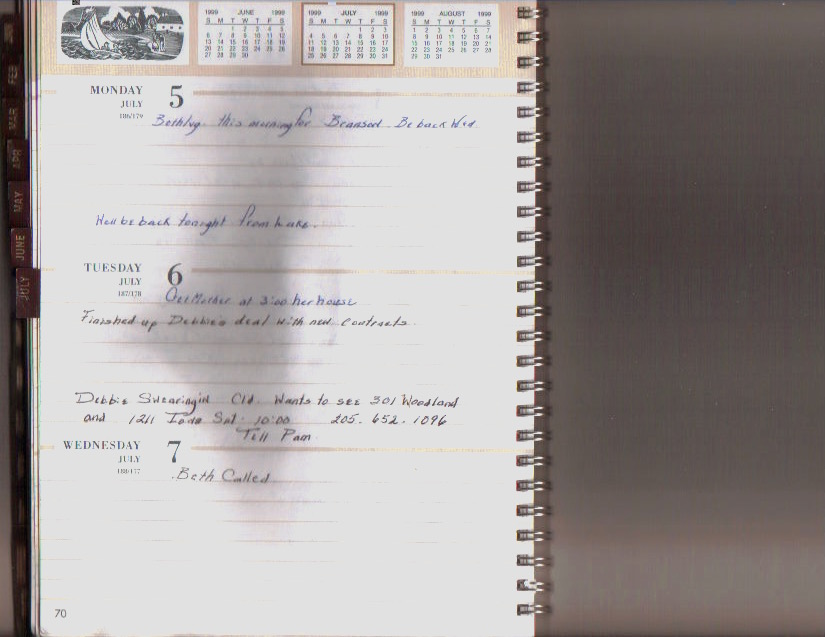 1999 JUNE 1999
S M T W T F S
1 2 3 4 5
6 7 8 9 10 11 12
13 14 15 16 17 18 19
20 21 22 23 24 25 26
27 28 29 30
1999 JULY 1999
S M T W T F S
1 2 3
4 5 6 7 8 9 10
11 12 13 14 15 16 17
18 19 20 21 22 23 24
25 26 27 28 29 30 31
1999 AUGUST 1999
S M T W T F S
1 2 3 4 5 6 7
8 9 10 11 12 13 14
15 16 17 18 19 20 21
22 23 24 25 26 27 28
29 30 31
FEB
MAR
APR
MAY
JUNE
JULY
MONDAY 5
JULY
186/179
this morning for Branson Be back Wed.
be back tonight from Lake.
TUESDAY 6
JULY
187/178
Get Mother at 3:00 her house
Finished up Debbie's deal with new Contracts
Debbie Swearingin Cld. Wants to see 301 Woodland
and 1211 Sat. 10:00 205.652.1096
Tell Pam
WEDNESDAY 7
JULY
188/177
Beth Called
70